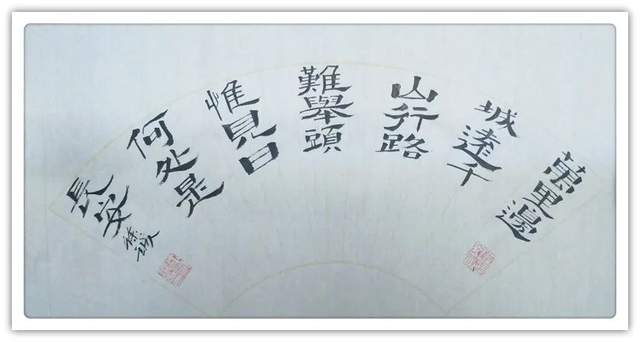 萬里邊
城逺千
山行路
難舉頭
惟見日
何处是
長安